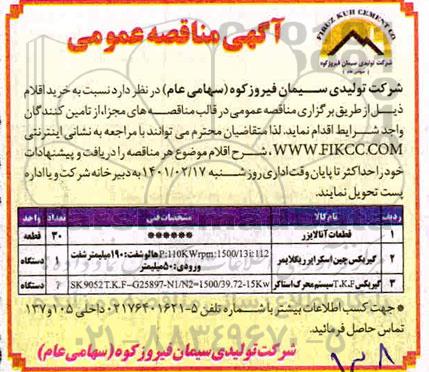 FIRUZ KUH CEMENT CO
شرکت تولیدی سیمان فیروزکوه
(سهامی عام)
آگهی مناقصه عمومی
شرکت تولیدی سیمان فیروزکوه (سهامی عام) در نظر دارد نسبت به خرید اقلام
ذیل از طریق برگزاری مناقصه عمومی در قالب مناقصه های مجزا، از تامین کنندگان
واجد شرایط اقدام نماید. لذا متقاضیان محترم می توانند با مراجعه به نشانی اینترنتی
WWW.FIKCC.COM، شرح اقلام موضوع هر مناقصه را دریافت و پیشنهادات
خود را حداکثر تا پایان وقت اداری روز شنبه ۱۴۰۱/۰۲/۱۷ به دبیرخانه شرکت و یا اداره
پست تحویل نمایند.
ردیف نام کالا مشخصات فنی تعداد واحد
۱ قطعات آنالایزر ****** ۳۰ قطعه
۲ گیربکس چین اسکراپر ریکلایمر P:110KWrpm:1500/13i:112 هالوشفت:۱۹۰میلیمتر شفت ورودی:۵۰میلیمتر ۱ دستگاه
۳ گیربکس T.K.F سیستم محرک استاکر SK9052T.K.F–G25897-N1/N2=1500/39.72-15Kw دستگاه
● جهت کسب اطلاعات بیشتر با شماره تلفن ۵-۰۲۱۷۶۴۰۱۶۲۱ داخلی ۱۰۵ و ۱۳۷
تماس حاصل فرمائید.
شرکت تولیدی سیمان فیروزکوه (سهامی عام)
۰۲۱-۸۸۳۴۹۶۷۰-۵
۱۳۸